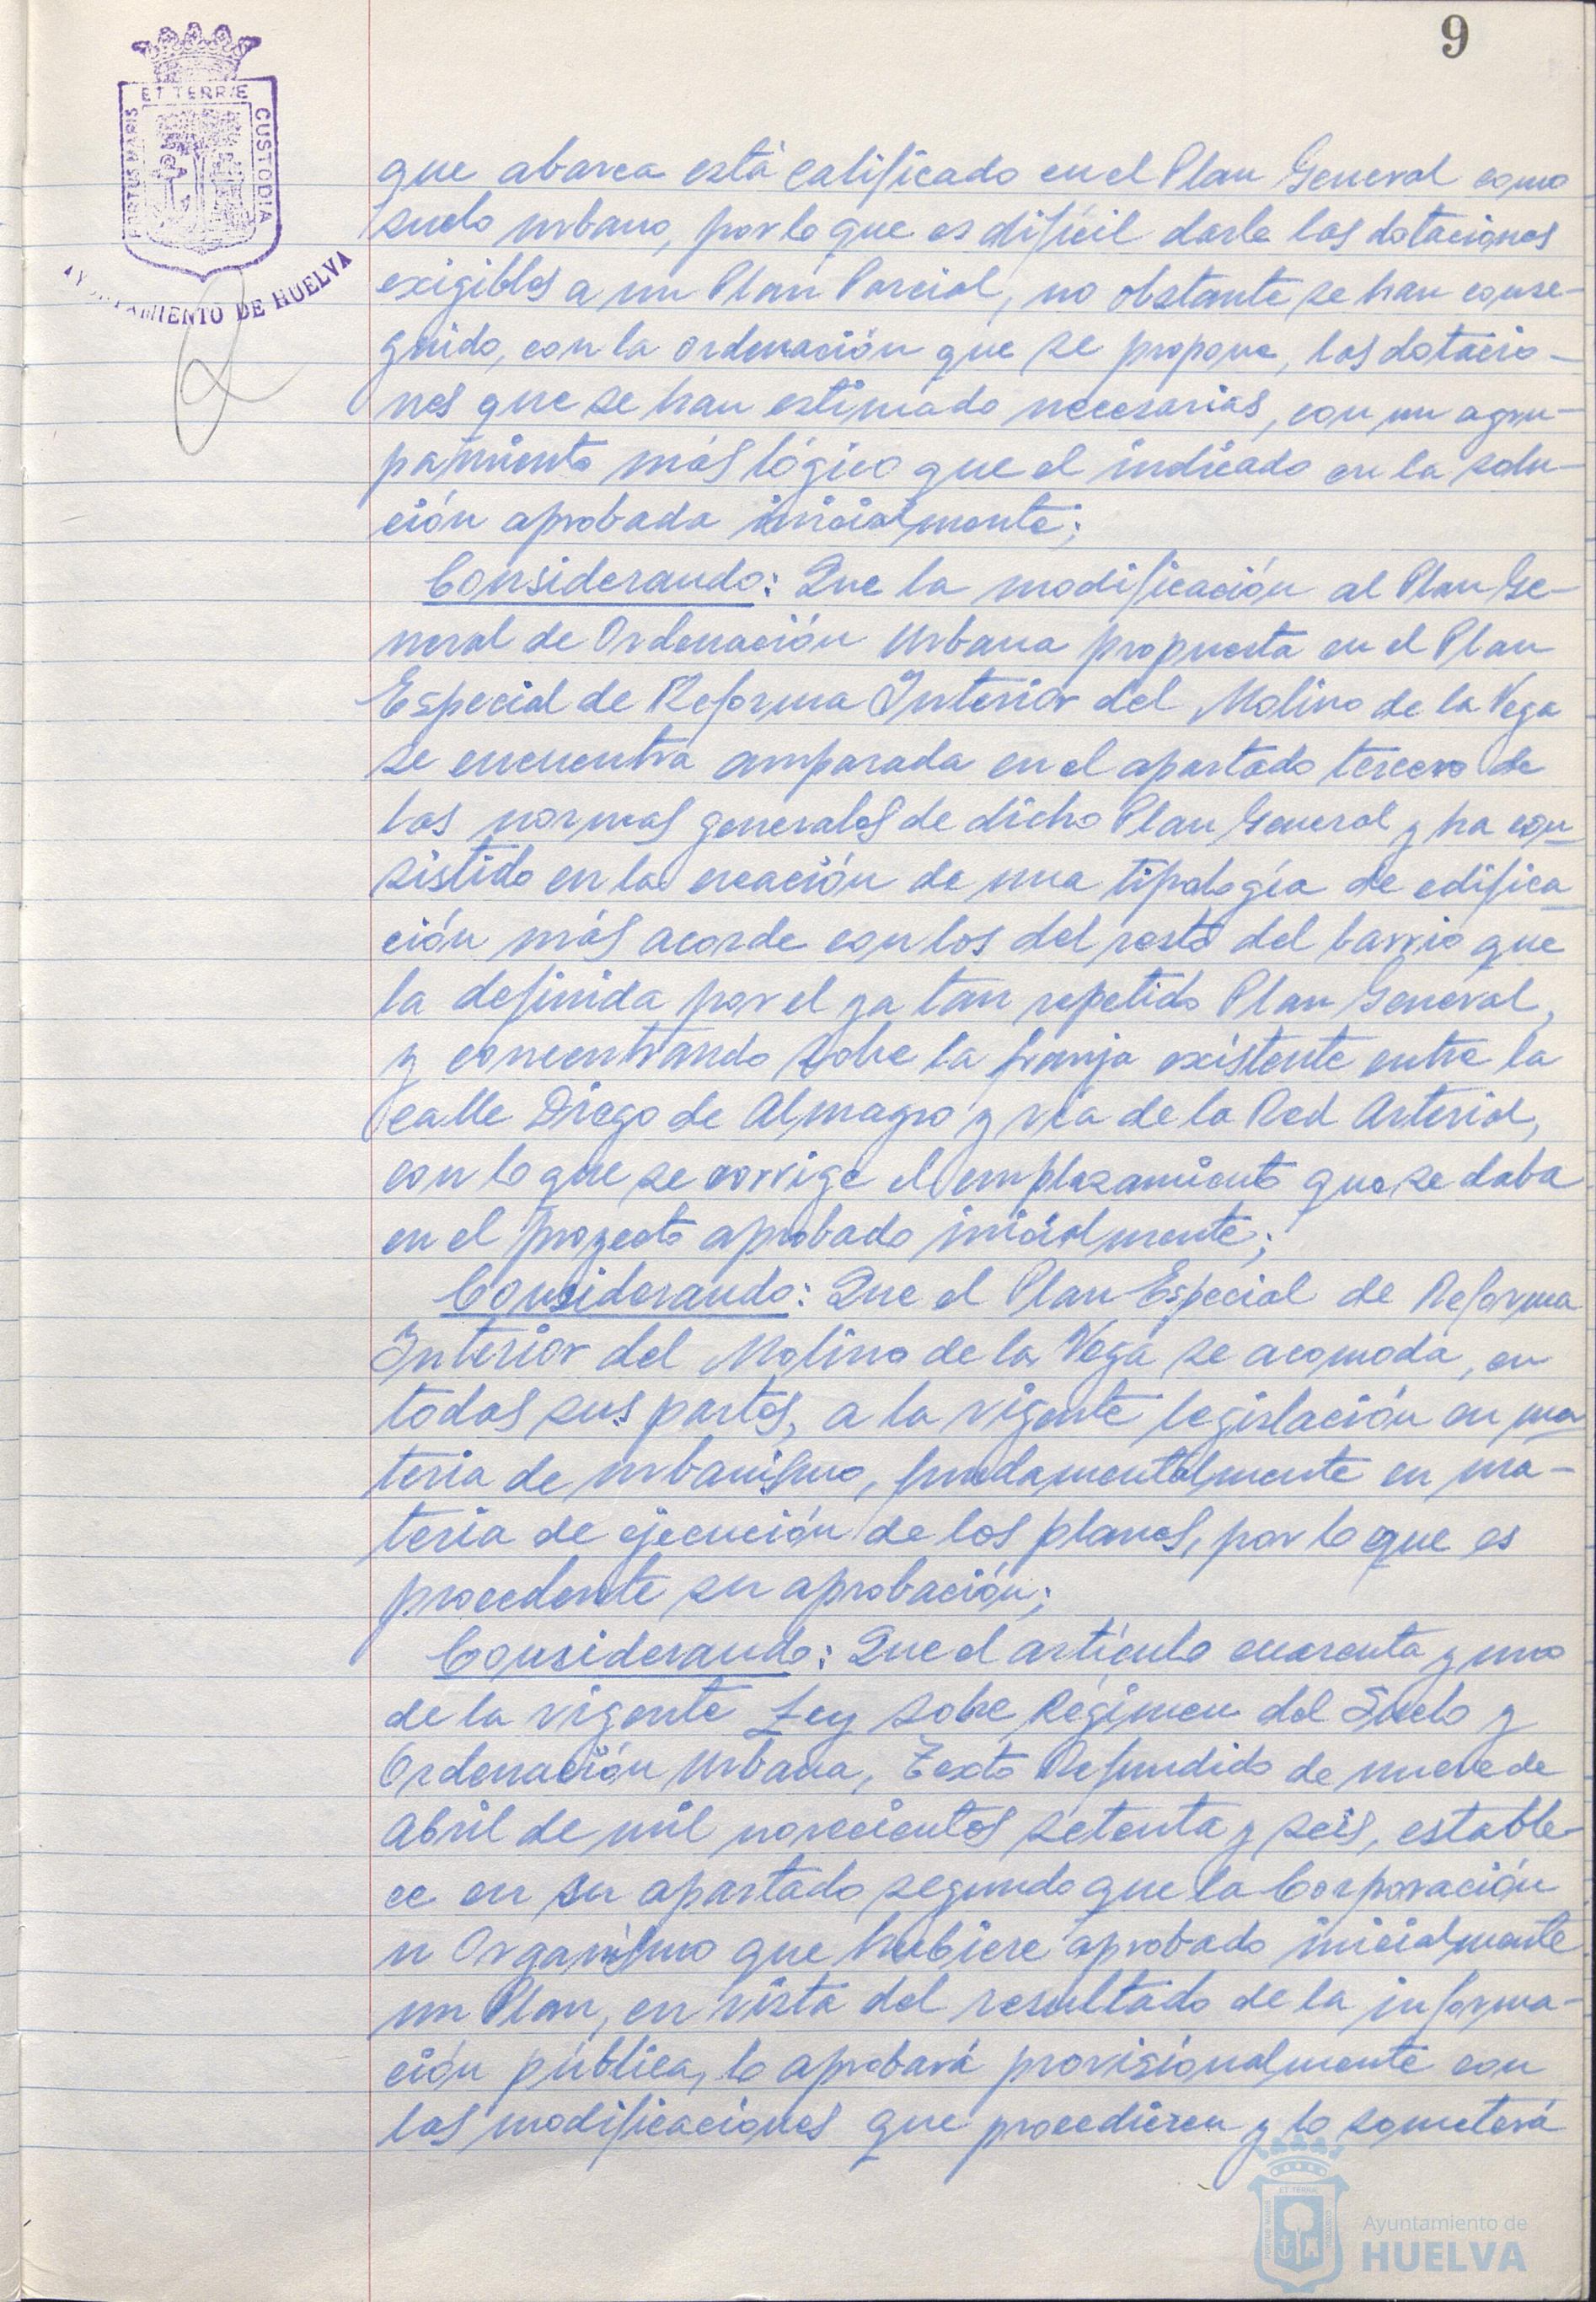 9
ET TERRÆ
PORTUS MARIS
CUSTODIA
AYUNTAMIENTO DE HUELVA
que abarca está calificado en el Plan General como
suelo urbano, por lo que es difícil darle las dotaciones
exigibles a un Plan Parcial, no obstante se han conse-
guido, con la ordenación que se propone, las dotacio-
nes que se han estimado necesarias, con un agru-
pamiento más lógico que el indicado en la solu-
ción aprobada inicialmente;
Considerando: Que la modificación al Plan Ge-
neral de Ordenación Urbana propuesta en el Plan
Especial de Reforma Interior del Molino de la Vega
se encuentra amparada en el apartado tercero de
las normas generales de dicho Plan General y ha con
sistido en la creación de una tipología de edifica
ción más acorde con los del resto del barrio que
la definida por el ya tan repetido Plan General,
y concentrando sobre la franja existente entre la
calle Diego de Almagro y vía de la Red Arterial,
con lo que se corrige el emplazamiento que se daba
en el proyecto aprobado inicialmente;
Considerando: Que el Plan Especial de Reforma
Interior del Molino de la Vega se acomoda, en
todas sus partes, a la vigente legislación en ma
teria de urbanismo, fundamentalmente en ma-
teria de ejecución de los planes, por lo que es
procedente su aprobación;
Considerando: Que el artículo cuarenta y uno
de la vigente Ley sobre Régimen del Suelo y
Ordenación Urbana, Texto Refundido de nueve de
Abril de mil novecientos setenta y seis, estable-
ce en su apartado segundo que la Corporación
u Organismo que hubiere aprobado inicialmente
un Plan, en vista del resultado de la informa-
ción pública, lo aprobará provisionalmente con
las modificaciones que procedieren y lo someterá
Ayuntamiento de
HUELVA